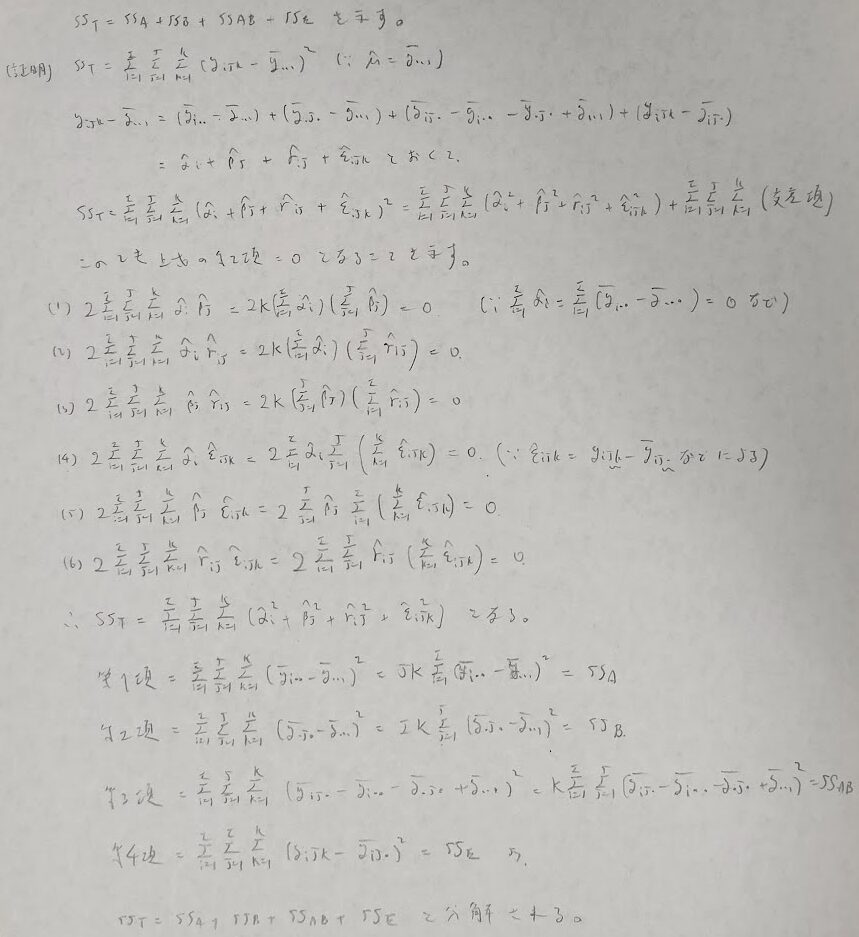 SS_T = SS_A + SS_B + SS_AB + SS_E を示す。
(証明) SS_T = Σ_{i=1}^{I} Σ_{j=1}^{J} Σ_{k=1}^{K} (y_{ijk} - ȳ...)² (∵ μ̂ = ȳ...)
y_{ijk} - ȳ... = (ȳ_{i..} - ȳ...) + (ȳ_{.j.} - ȳ...) + (ȳ_{ij.} - ȳ_{i..} - ȳ_{.j.} + ȳ...) + (y_{ijk} - ȳ_{ij.})
= α̂_i + β̂_j + γ̂_{ij} + ε̂_{ijk} とおくと、
SS_T = Σ_{i=1}^{I} Σ_{j=1}^{J} Σ_{k=1}^{K} (α̂_i + β̂_j + γ̂_{ij} + ε̂_{ijk})² = Σ_{i=1}^{I} Σ_{j=1}^{J} Σ_{k=1}^{K} (α̂_i² + β̂_j² + γ̂_{ij}² + ε̂_{ijk}²) + Σ_{i=1}^{I} Σ_{j=1}^{J} Σ_{k=1}^{K} (交差項)
このとき上式の第2項 = 0 となることを示す。
(1) 2 Σ_{i=1}^{I} Σ_{j=1}^{J} Σ_{k=1}^{K} α̂_i β̂_j = 2K (Σ_{i=1}^{I} α̂_i) (Σ_{j=1}^{J} β̂_j) = 0 (∵ Σ_{i=1}^{I} α̂_i = Σ_{i=1}^{I} (ȳ_{i..} - ȳ...) = 0 など)
(2) 2 Σ_{i=1}^{I} Σ_{j=1}^{J} Σ_{k=1}^{K} α̂_i γ̂_{ij} = 2K (Σ_{i=1}^{I} α̂_i) (Σ_{j=1}^{J} γ̂_{ij}) = 0.
(3) 2 Σ_{i=1}^{I} Σ_{j=1}^{J} Σ_{k=1}^{K} β̂_j γ̂_{ij} = 2K (Σ_{j=1}^{J} β̂_j) (Σ_{i=1}^{I} γ̂_{ij}) = 0
(4) 2 Σ_{i=1}^{I} Σ_{j=1}^{J} Σ_{k=1}^{K} α̂_i ε̂_{ijk} = 2 Σ_{i=1}^{I} α̂_i Σ_{j=1}^{J} (Σ_{k=1}^{K} ε̂_{ijk}) = 0. (∵ ε̂_{ijk} = y_{ijk} - ȳ_{ij.} などによる)
(5) 2 Σ_{i=1}^{I} Σ_{j=1}^{J} Σ_{k=1}^{K} β̂_j ε̂_{ijk} = 2 Σ_{j=1}^{J} β̂_j Σ_{i=1}^{I} (Σ_{k=1}^{K} ε̂_{ijk}) = 0.
(6) 2 Σ_{i=1}^{I} Σ_{j=1}^{J} Σ_{k=1}^{K} γ̂_{ij} ε̂_{ijk} = 2 Σ_{i=1}^{I} Σ_{j=1}^{J} γ̂_{ij} (Σ_{k=1}^{K} ε̂_{ijk}) = 0.
∴ SS_T = Σ_{i=1}^{I} Σ_{j=1}^{J} Σ_{k=1}^{K} (α̂_i² + β̂_j² + γ̂_{ij}² + ε̂_{ijk}²) となる。
第1項 = Σ_{i=1}^{I} Σ_{j=1}^{J} Σ_{k=1}^{K} (ȳ_{i..} - ȳ...)² = JK Σ_{i=1}^{I} (ȳ_{i..} - ȳ...)² = SS_A
第2項 = Σ_{i=1}^{I} Σ_{j=1}^{J} Σ_{k=1}^{K} (ȳ_{.j.} - ȳ...)² = IK Σ_{j=1}^{J} (ȳ_{.j.} - ȳ...)² = SS_B.
第3項 = Σ_{i=1}^{I} Σ_{j=1}^{J} Σ_{k=1}^{K} (ȳ_{ij.} - ȳ_{i..} - ȳ_{.j.} + ȳ...)² = K Σ_{i=1}^{I} Σ_{j=1}^{J} (ȳ_{ij.} - ȳ_{i..} - ȳ_{.j.} + ȳ...)² = SS_AB
第4項 = Σ_{i=1}^{I} Σ_{j=1}^{I} Σ_{k=1}^{K} (y_{ijk} - ȳ_{ij.})² = SS_E より、
SS_T = SS_A + SS_B + SS_AB + SS_E と分解される。